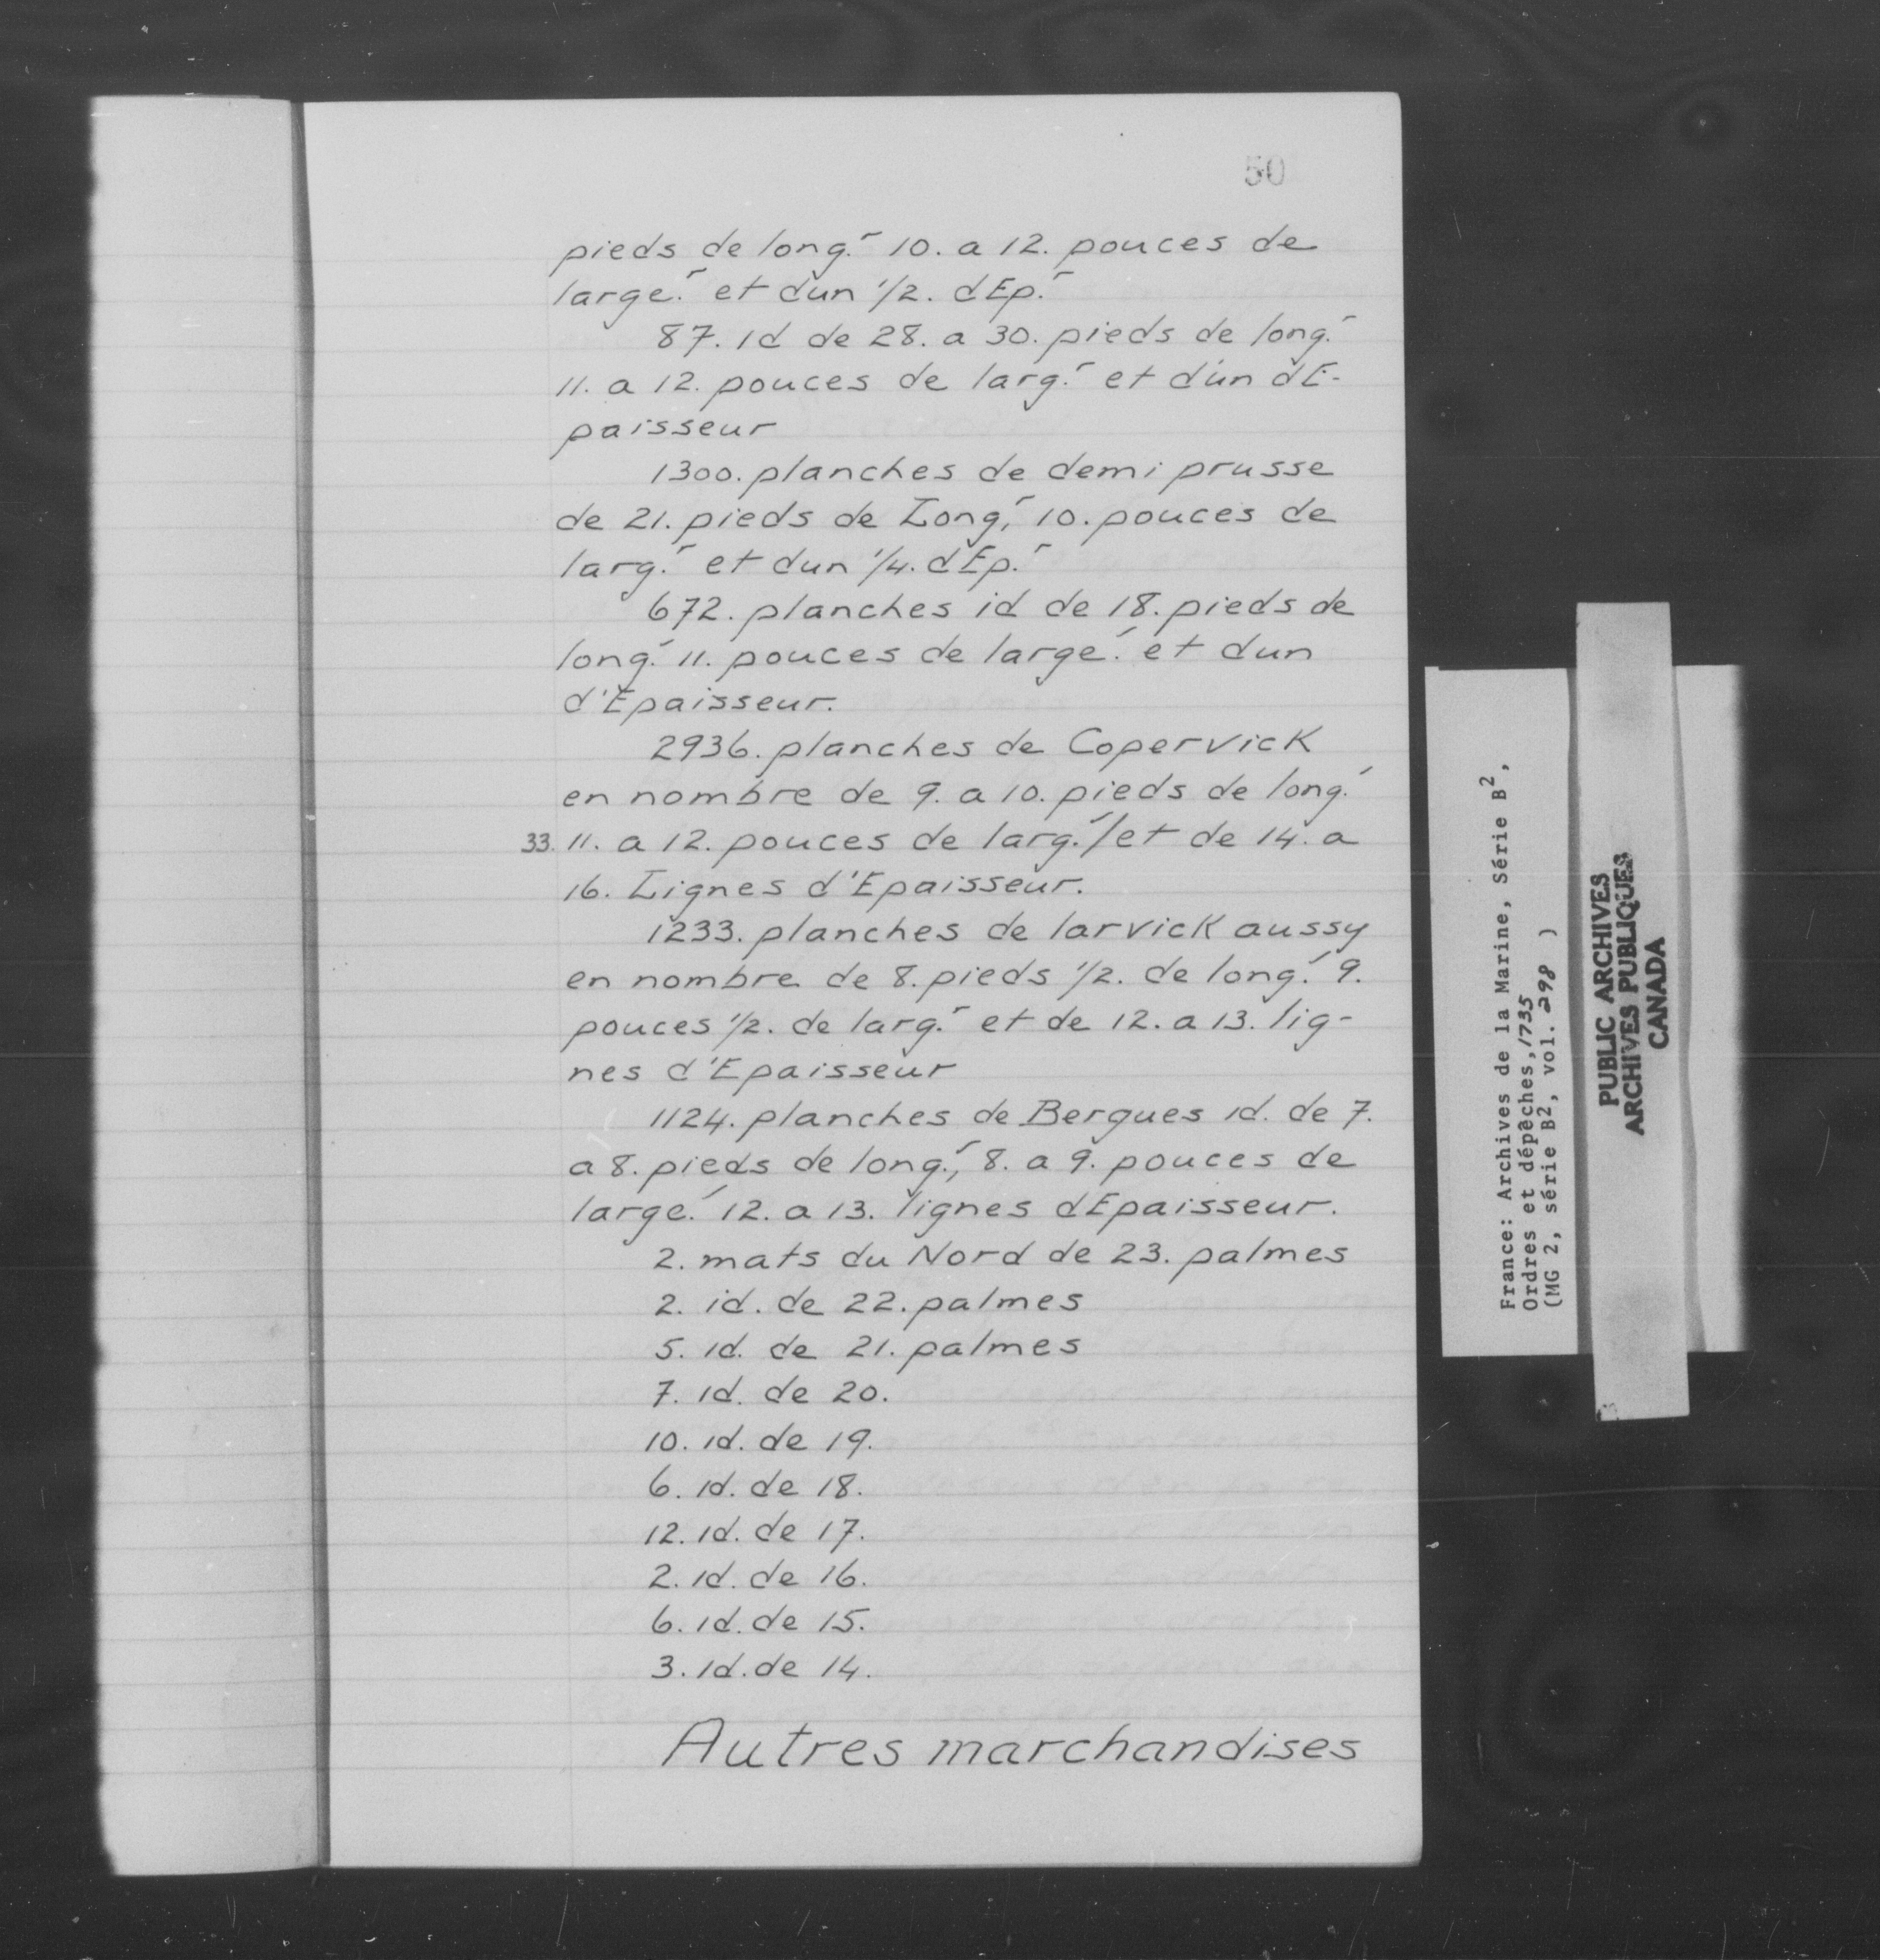 50
pieds de long.r 10. a 12. pouces de
large.r et dun 1/2. dEp.r
87. id de 28. a 30. pieds de long.r
11. a 12. pouces de larg.r et d'un dE-
paisseur
1300. planches de demi prusse
de 21. pieds de Long,r 10. pouces de
larg.r et dun 1/4. dEp.r
672. planches id de 18. pieds de
long.r 11. pouces de large.r et dun
d'Epaisseur.
2936. planches de Copervick
en nombre de 9. a 10. pieds de long.r
33. 11. a 12. pouces de larg.r/et de 14. a
16. Lignes d'Epaisseur.
1233. planches de larvick aussy
en nombre de 8. pieds 1/2. de long.r 9.
pouces 1/2. de larg.r et de 12. a 13. lig-
nes d'Epaisseur
1124. planches de Bergues id. de 7.
a 8. pieds de long.r, 8. a 9. pouces de
large.r 12. a 13. lignes dEpaisseur.
2. mats du Nord de 23. palmes
2. id. de 22. palmes
5. id. de 21. palmes
7. id. de 20.
10. id. de 19.
6. id. de 18.
12. id. de 17.
2. id. de 16.
6. id. de 15.
3. id. de 14.
Autres marchandises
France: Archives de la Marine, Série B2,
Ordres et dépêches, 1735
(MG 2, série B2, vol. 298 )
PUBLIC ARCHIVES
ARCHIVES PUBLIQUES
CANADA